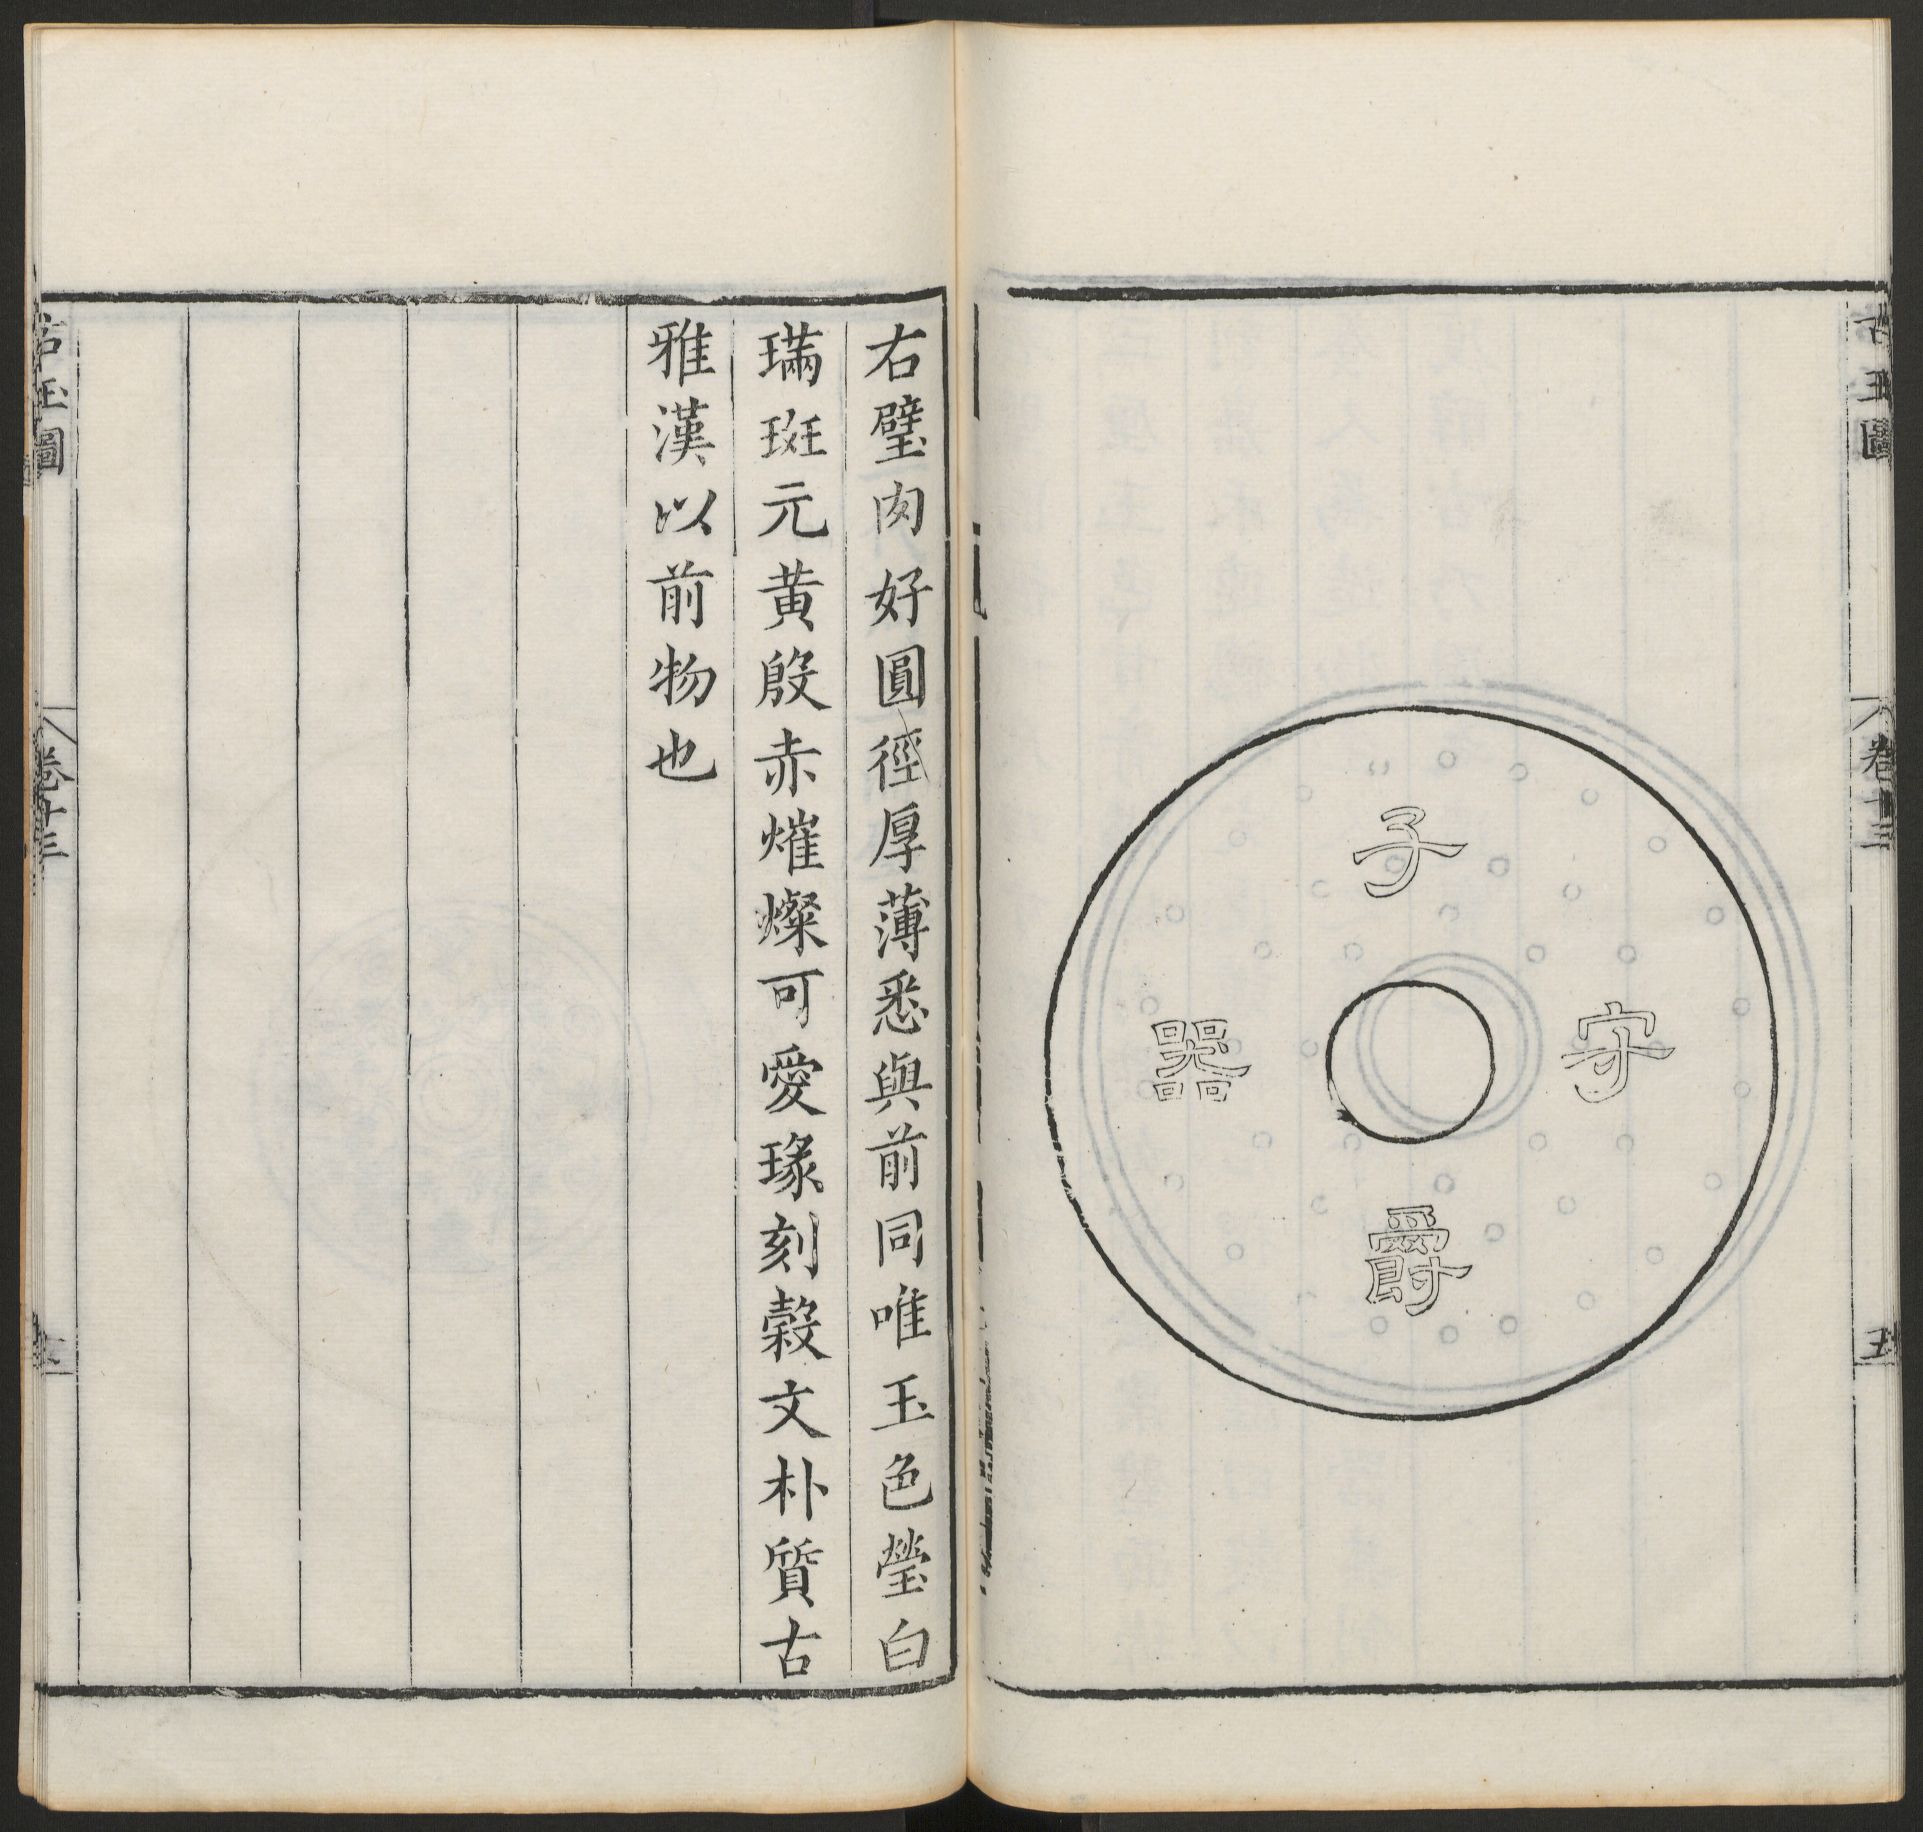 古玉圖
卷十三
五
子
守
器
爵
右璧肉好圓徑厚薄悉與前同唯玉色瑩白
璊斑元黃殷赤熣燦可愛瑑刻榖文朴質古
雅漢以前物也
古玉圖
卷十三